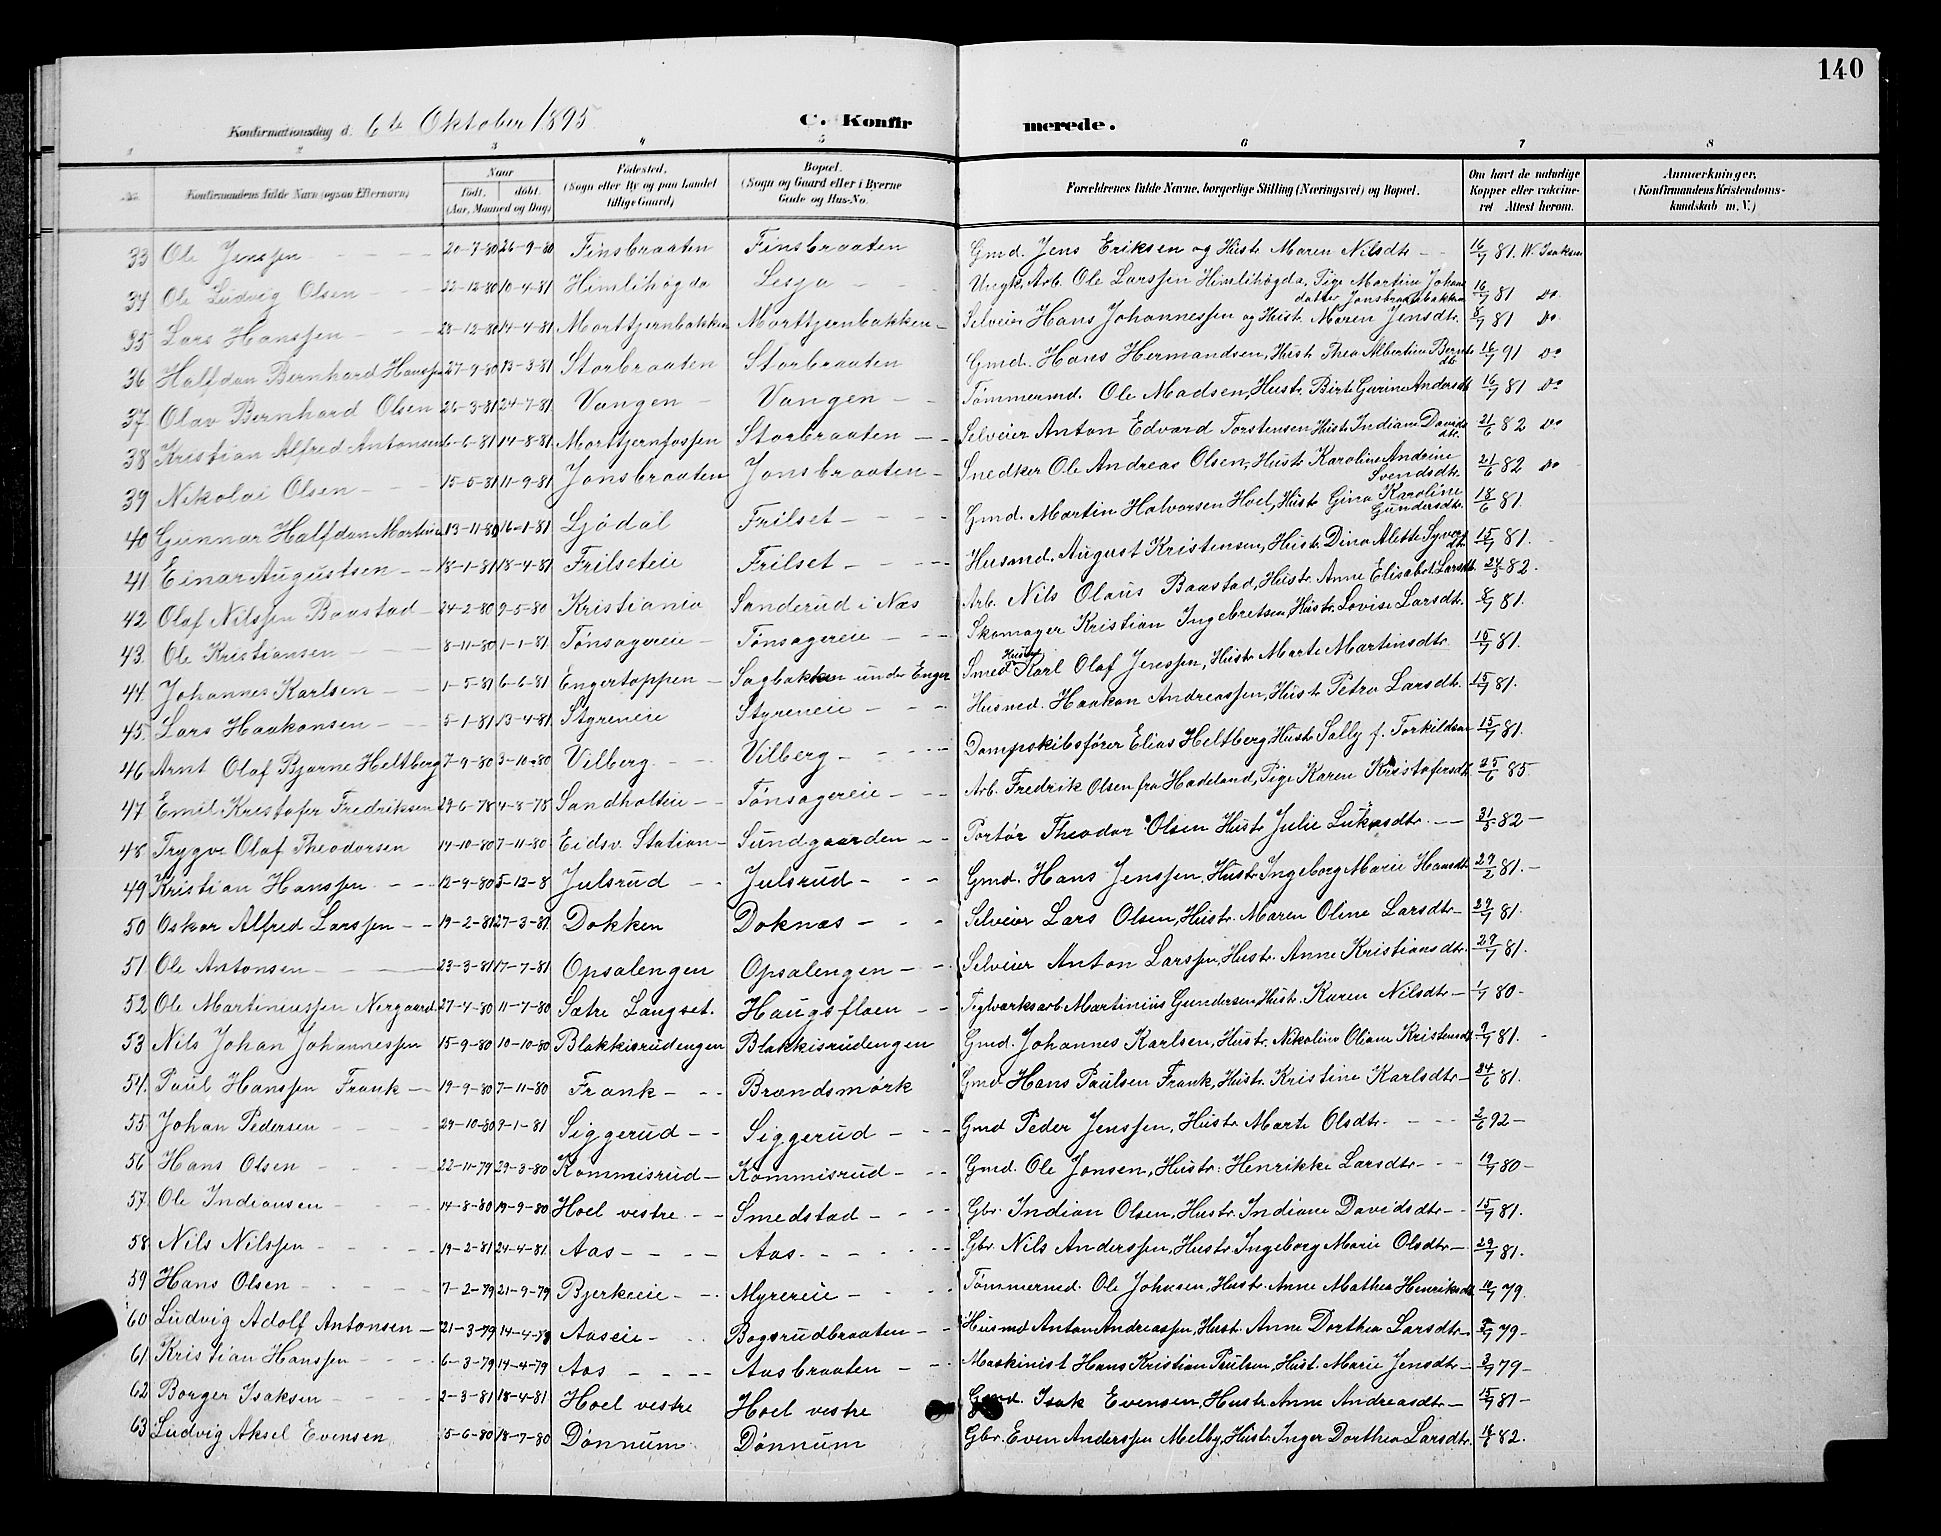 140
Konfirmationsdag d. 6te Oktober 1895. C. Konfirmerede.
1 2 3 4 5 6 7 8
No. Konfirmandens fulde Navn (ogsaa Efternavn) Naar Født, døbt. (Aar, Maaned og Dag) Fødested. (Sogn eller By og paa Landet tillige Gaard) Bopæl. (Sogn og Gaard eller i Byerne Gade og Hus-No. Forældrenes fulde Navne, borgerlige Stilling (Næringsvei) og Bopæl. Om havt de naturlige Kopper eller vakcineret. Attest herom. Anmærkninger. (Konfirmandens Kristendomskundskab m. V.)
33 Ole Jenssen 20-7-80 26-9-80 Finsbraaten Finsbraaten Gmd. Jens Eriksen og Hustr. Maren Nilsdtr 16/7 81. W. Isaksen
34 Ole Ludvig Olsen 22-12-80 10-4-81 Himlihögda Lesja Ungk. Arb. Ole Larssen Himlihögda, Pige Martine Johans
datter Jonsbraatabakken 16/7 81 Do.
35 Lars Hanssen 23-12-80 14-4-81 Morttjernbakken Morttjernbakken Selveier Hans Johannessen og Hustr. Maren Jensdtr. 8/7 81 Do
36 Halfdan Bernhard Hanssen 27-9-80 13-3-81 Storbraaten Storbraaten Gmd. Hans Hermandsen, Hustr Thea Albertine Berntsdtr 16/7 91 Do
37 Olav Bernhard Olsen 26-3-81 24-7-81 Vangen Vangen Tömmermd. Ole Madsen, Hustr. Birte Gurine Andersdtr 16/7 81 Do
38 Kristian Alfred Antonsen 6-6-81 14-8-81 Morttjernfossen Storbraaten Selveier Anton Edvard Torstensen Hustr. Indiane Davidsdtr. 21/6 82 Do
39 Nikolai Olsen 15-5-81 11-9-81 Jonsbraaten Jonsbraaten Snedker Ole Andreas Olsen, Hustr Karoline Andrine
Svendsdtr. 21/6 82 Do
40 Gunnar Halfdan Martin 13-11-80 16-1-81 Ljödal Frilset Gmd. Martin Halvorsen Hoel, Hustr Gina Karoline
Gundersdtr. 18/6 81.
41 Einar Augustsen 18-1-81 18-4-81 Frilseteie Frilset Husmd. August Kristensen, Hustr. Dina Alette Syversdtr. 15/7 81.
42 Olaf Nilssen Baastad 24-2-80 9-5-80 Kristiania Sanderud i Næs Arb. Nils Olaus Baastad, Hustr. Anne Elisabet Larsdtr. 24/5 82.
43. Ole Kristiansen 8-11-80 1-1-81 Tönsagereie Tönsagereie Skomager Kristian Ingebretsen Hustr. Lovise Larsdtr. 8/7 81.
44. Johannes Karlsen 1-5-81 6-6-81 Engertoppen Sagbakken under Enger Smed Karl Olaf Jenssen, Hustr Marte Martinsdtr. 15/7 81.
45. Lars Haakonsen 5-1-81 13-4-81 Styreneie Styreneie Husmd. Haakon Andreassen, Hustr Petra Larsdtr. 15/7 81.
46 Arnt Olaf Bjarne Heltberg 7-9-80 3-10-80 Vilberg Vilberg Dampskibsförer Elias Heltberg Hustr Sally f. Torkildsen 15/7 81.
47 Emil Kristofer Fredriksen 29-6-78 4-8-78 Sandholteie Tönsagereie Arb. Fredrik Olsen fra Hadeland, Pige Karen Kristofersdtr 25/6 85.
48 Trygve Olaf Theodorsen 14-10-80 7-11-80 Eidsv. Station Sundgaarden Portör Theodor Olsen Hustr Julie Lukasdtr 31/5 82
49 Kristian Hanssen 12-9-80 5-12-8 Julsrud Julsrud Gmd. Hans Jenssen, Hustr. Ingeborg Marie Hansdtr 27/2 81.
50 Oskar Alfred Larssen 19-2-81 27-3-81 Dokken Doknæs Selveier Lars Olsen, Hustr. Maren Oline Larsdtr 29/7 81.
51 Ole Antonsen 23-3-81 17-7-81 Opsalengen Opsalengen Selveier Anton Larssen, Hustr. Anne Kristiansdtr. 29/7 81.
52 Ole Martiniussen Nergaard 27-4-80 11-7-80 Sætre Langset. Haugsfloen Teglværksarb. Martinius Gundersen, Hustr. Karen Nilsdtr 1/7 80
53 Nils Johan Johannessen 15-9-80 10-10-80 Blakkisrudengen Blakkisrudengen Gmd. Johannes Karlsen, Hustr. Nikoline Oliane Kristensdtr 9/7 81.
54. Paul Hanssen Frank 19-9-80 7-11-80 Frank Brændsmörk Gmd Hans Paulsen Frank, Hustr. Kristine Karlsdtr 24/6 81.
55 Johan Pedersen 24-10-80 9-1-81 Siggerud Siggerud Gmd Peder Jenssen, Hustr Marte Olsdtr. 2/6 92
56 Hans Olsen 22-11-79 29-3-80 Kommisrud Kommisrud Gmd. Ole Jonsen, Hustr. Henrikke Larsdtr 19/7 80
57. Ole Indiansen 14-8-80 19-9-80 Hoel vestre Smedstad Gbr. Indian Olsen, Hustr. Indiane Davidsdtr 15/7 81.
58. Nils Nilssen 19-2-81 24-4-81 Aas Aas Gbr. Nils Anderssen, Hustr Ingeborg Marie Olsdtr 29/7 81.
59 Hans Olsen 7-2-79 21-9-79 Bjerkeeie Myrereie Tömmermd. Ole Johnsen, Hustr. Anne Mathea Henriksdtr 79.
60 Ludvig Adolf Antonsen 21-3-79 14-4-79 Aaseie Bagsrudbraaten Husmd Anton Andreassen, Hustr. Anne Dorthea Larsdtr 79
61 Kristian Hanssen 6-3-79 14-4-79 Aas Aasbraaten Maskinist Hans Kristian Paulsen, Hust. Marie Jensdtr 3/7 79
62 Borger Isaksen 2-3-81 18-4-81 Hoel vestre Hoel vestre Gmd. Isak Evensen, Hustr Anne Andreasdtr 15/7 81
63 Ludvig Aksel Evensen 5-6-80 18-7-80 Dönnum Dönnum Gbr. Even Anderssen Melby, Hustr. Inger Dorthea Larsdtr. 14/6 82.